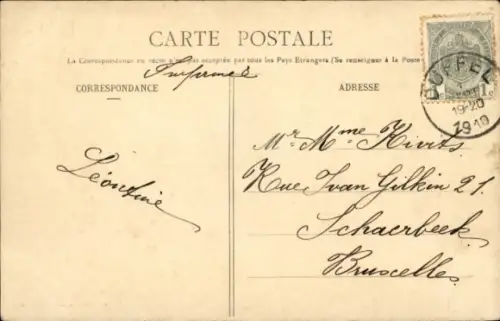 CARTE POSTALE
La Correspondance au recto n'est pas acceptée par tous les Pays Etrangers. (Se renseigner à la Poste
Imprimé
CORRESPONDANCE
ADRESSE
DUFFEL
19-20
1910
1c
Mr Mme Kivits
Rue Ivan Gilkin 21.
Schaerbeek
Bruxelles.
Léontine